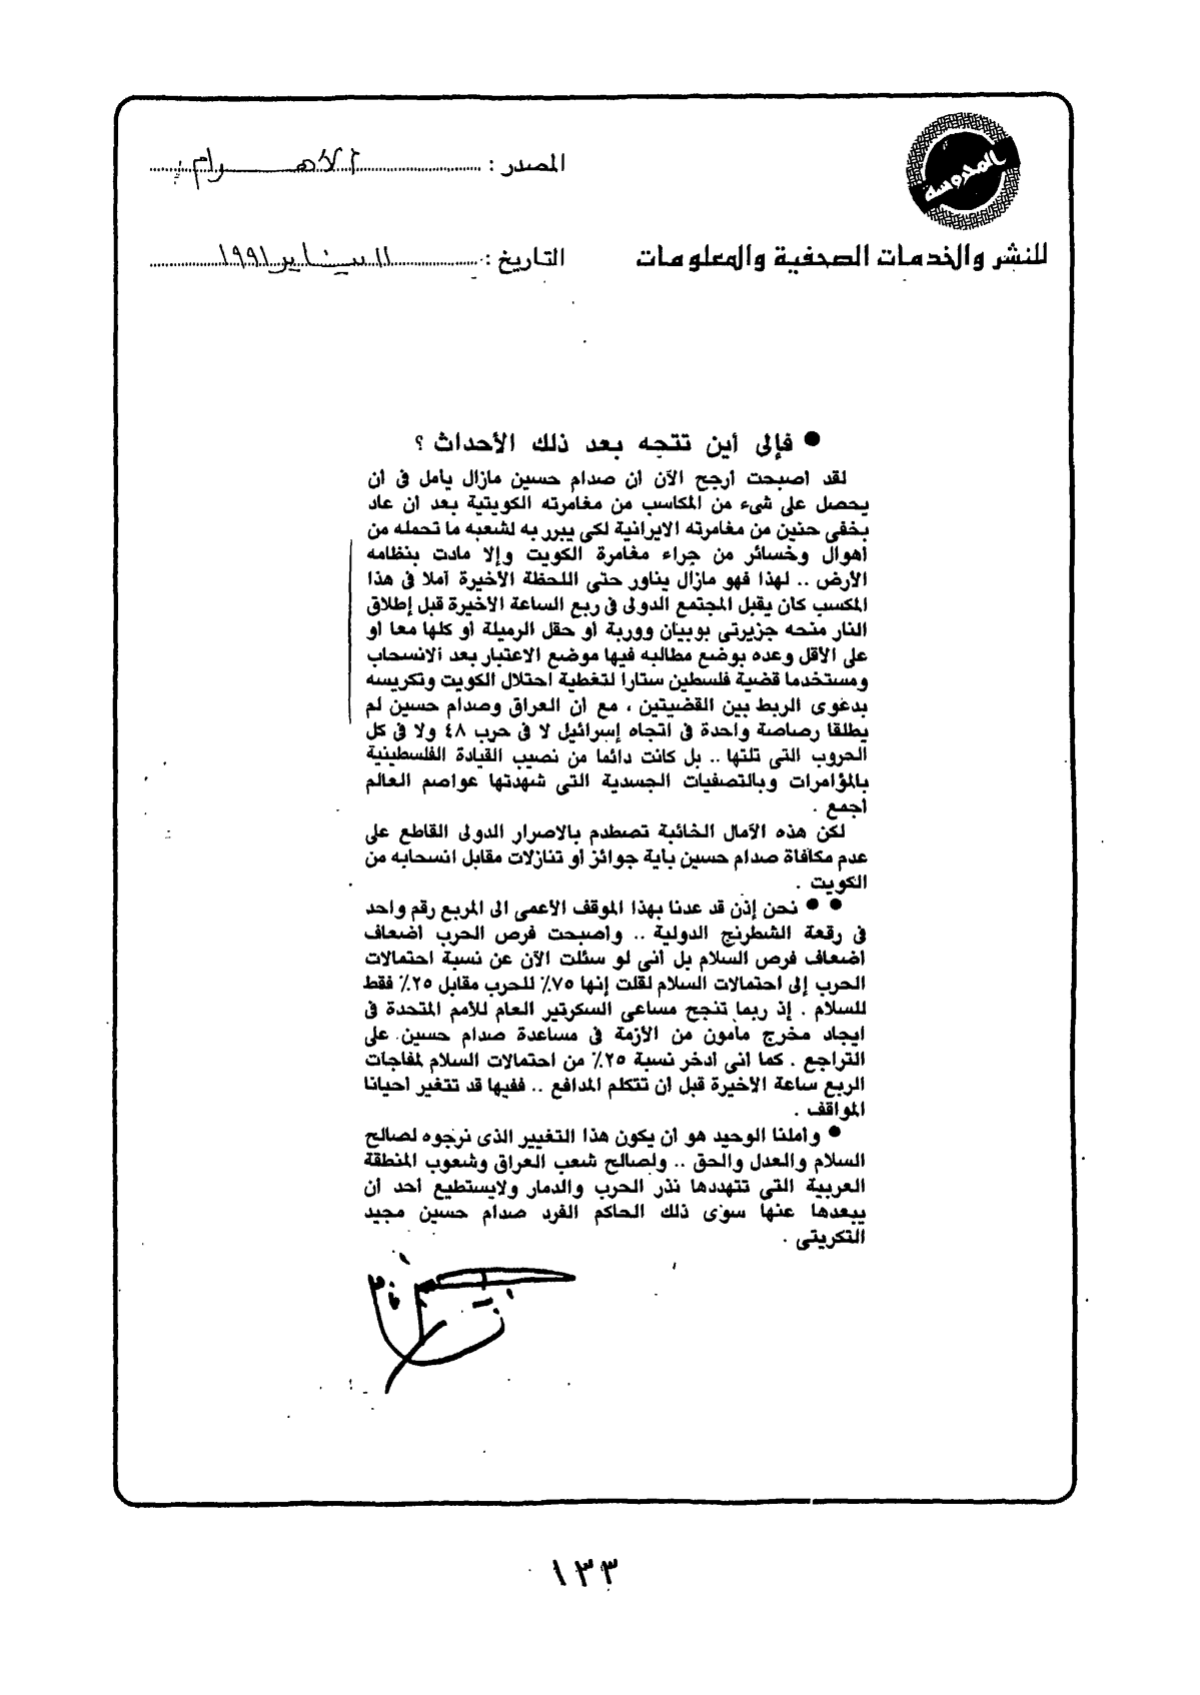 المحروسة
المصدر : الأهرام
للنشر والخدمات الصحفية والمعلومات
التاريخ : ١١ يناير ١٩٩١
● فإلى أين تتجه بعد ذلك الأحداث ؟
لقد أصبحت أرجح الآن أن صدام حسين مازال يأمل فى أن
يحصل على شىء من المكاسب من مغامرته الكويتية بعد أن عاد
بخفى حنين من مغامرته الايرانية لكى يبرر به لشعبه ما تحمله من
أهوال وخسائر من جراء مغامرة الكويت وإلا مادت بنظامه
الأرض .. لهذا فهو مازال يناور حتى اللحظة الأخيرة آملا فى هذا
المكسب كان يقبل المجتمع الدولى فى ربع الساعة الأخيرة قبل إطلاق
النار منحه جزيرتى بوبيان ووربة أو حقل الرميلة أو كلها معا أو
على الأقل وعده بوضع مطالبه فيها موضع الاعتبار بعد الانسحاب
ومستخدما قضية فلسطين ستارا لتغطية احتلال الكويت وتكريسه
بدعوى الربط بين القضيتين ، مع أن العراق وصدام حسين لم
يطلقا رصاصة واحدة فى اتجاه إسرائيل لا فى حرب ٤٨ ولا فى كل
الحروب التى تلتها .. بل كانت دائما من نصيب القيادة الفلسطينية
بالمؤامرات وبالتصفيات الجسدية التى شهدتها عواصم العالم
أجمع .
لكن هذه الآمال الخائبة تصطدم بالاصرار الدولى القاطع على
عدم مكافأة صدام حسين بأية جوائز أو تنازلات مقابل انسحابه من
الكويت .
● ● نحن إذن قد عدنا بهذا الموقف الأعمى الى المربع رقم واحد
فى رقعة الشطرنج الدولية .. وأصبحت فرص الحرب أضعاف
أضعاف فرص السلام بل أنى لو سئلت الآن عن نسبة احتمالات
الحرب إلى احتمالات السلام لقلت إنها ٧٥٪ للحرب مقابل ٢٥٪ فقط
للسلام . إذ ربما تنجح مساعى السكرتير العام للأمم المتحدة فى
ايجاد مخرج مأمون من الأزمة فى مساعدة صدام حسين على
التراجع . كما أنى أدخر نسبة ٢٥٪ من احتمالات السلام لمفاجات
الربع ساعة الأخيرة قبل أن تتكلم المدافع .. ففيها قد تتغير أحيانا
المواقف .
● وأملنا الوحيد هو أن يكون هذا التغيير الذى نرجوه لصالح
السلام والعدل والحق .. ولصالح شعب العراق وشعوب المنطقة
العربية التى تتهددها نذر الحرب والدمار ولايستطيع أحد أن
يبعدها عنها سوى ذلك الحاكم الفرد صدام حسين مجيد
التكريتى .
١٣٣